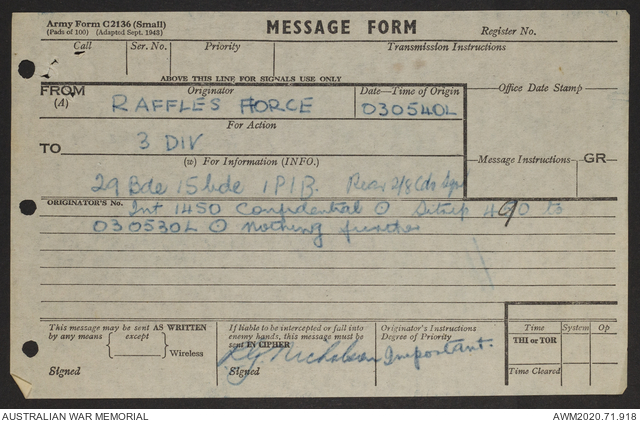 Army Form C2136 (Small)
(Pads of 100) (Adapted Sept. 1943)
MESSAGE FORM
Register No.
Call
Ser. No.
Priority
Transmission Instructions
ABOVE THIS LINE FOR SIGNALS USE ONLY
FROM
(A)
Originator
RAFFLES FORCE
Date—Time of Origin
030540L
Office Date Stamp
For Action
TO
3 DIV
(w) For Information (INFO.)
Message Instructions
GR
29 Bde 15 bde 1 PIB. Rear 2/8 Cdo
ORIGINATOR'S No.
Int 1450 Confidential Sitrep 490 to
030530L Nothing further
This message may be sent AS WRITTEN
by any means except
Wireless
Signed
If liable to be intercepted or fall into
enemy hands, this message must be
sent IN CIPHER
Nicholson
Signed
Originator's Instructions
Degree of Priority
Important.
Time
System
Op
THI or TOR
Time Cleared
AUSTRALIAN WAR MEMORIAL
AWM2020.71.918